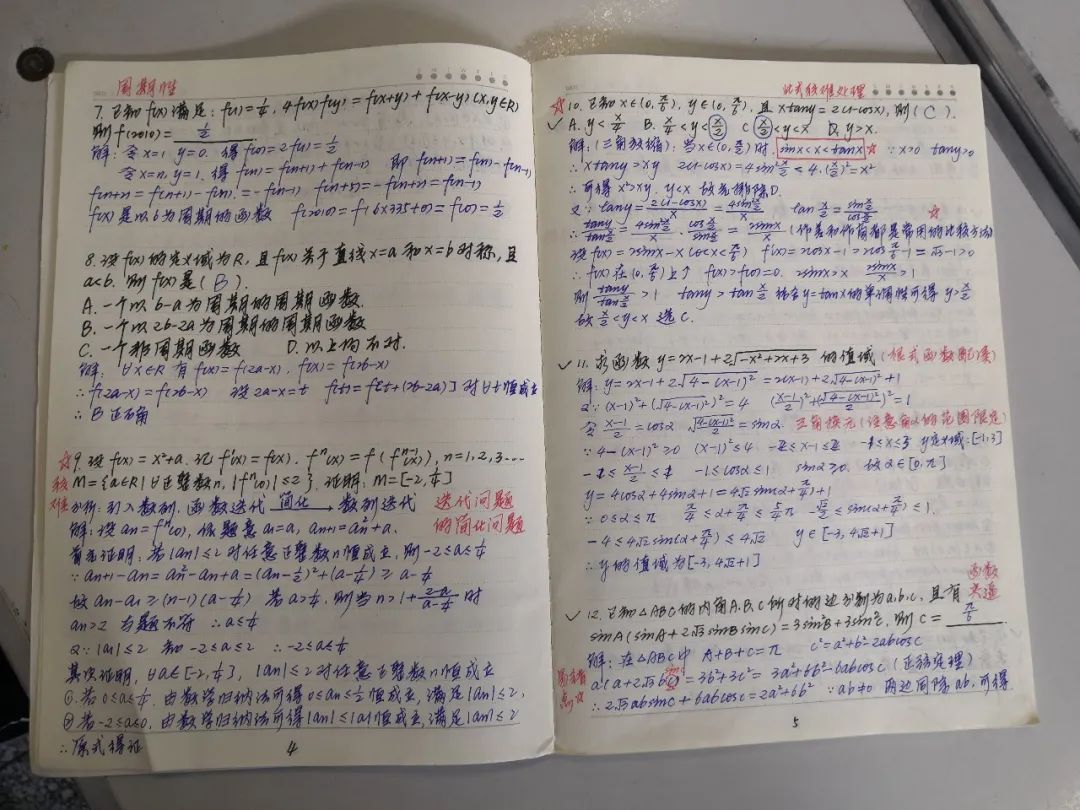 周期性
7. 已知f(x)满足: f(1)=1/4, 4f(x)f(y)=f(x+y)+f(x-y) (x,y∈R)
则f(2010)= 1/2
解: 令x=1 y=0. 得f(0)=2f(1)=1/2
令x=n, y=1. 得f(n)=f(n+1)+f(n-1) 即f(n+1)=f(n)-f(n-1)
f(n+2)=f(n+1)-f(n)=-f(n-1) f(n+5)=-f(n+2)=f(n-1)
f(x)是以6为周期的函数 f(2010)=f(6×335+0)=f(0)=1/2
8. 设f(x)的定义域为R, 且f(x)关于直线x=a和x=b对称, 且
a<b. 则f(x)是(B).
A. 一个以b-a为周期的周期函数.
B. 一个以2b-2a为周期的周期函数
C. 一个非周期函数 D. 以上均不对.
解: ∀x∈R 有f(x)=f(2a-x). f(x)=f(2b-x)
∴f(2a-x)=f(2b-x) 设2a-x=t f(t)=f[t+(2b-2a)]对∀t恒成立
∴B正确
☆9. 设f(x)=x²+a. 记f¹(x)=f(x). fⁿ(x)=f(fⁿ⁻¹(x)), n=1,2,3…
较难
M={a∈R|∀正整数n, |fⁿ(0)|≤2}. 证明, M=[-2,1/4]
分析: 引入数列. 函数迭代 简化→ 数列迭代 迭代问题
的简化问题
解: 设an=fⁿ(0), 依题意a1=a, an+1=an²+a.
首先证明, 若|an|≤2对任意正整数n恒成立, 则-2≤a≤1/4
∵an+1-an=an²-an+a=(an-1/2)²+(a-1/4)≥a-1/4
故an-a1≥(n-1)(a-1/4) 若a>1/4, 则当n>1+(2-a)/(a-1/4)时
an>2 与题不符 ∴a≤1/4
又∵|a1|≤2 知-2≤a≤2 ∴-2≤a≤1/4
其次证明, ∀a∈[-2,1/4], |an|≤2对任意正整数n恒成立
①若0≤a≤1/4, 由数学归纳法可得0≤an≤1/2恒成立, 满足|an|≤2,
②若-2≤a≤0, 由数学归纳法可得|an|≤|a|恒成立, 满足|an|≤2
∴原式得证
4
此式较难处理
☆10. 已知x∈(0,π/6), y∈(0,π/6), 且xtany=2(1-cosx), 则(C).
✓ A. y<x/4 B. x/4<y<x/2 C. x/2<y<x D. y>x.
解: (三角放缩): 当x∈(0,π/2)时. sinx<x<tanx ☆ ∵x>0 tany>0
∴xtany>xy 2(1-cosx)=4sin²x/2<4·(x/2)²=x²
∴可得x²>xy. y<x 故先排除D.
又∵tany=2(1-cosx)/x=4sin²x/2/x tanx/2=sinx/2/cosx/2 ☆
∴tany/tanx/2=4sin²x/2/x·cosx/2/sinx/2=2sinx/x (作差和作商都是常用的比较方法)
设f(x)=2sinx-x (0<x<π/6) f'(x)=2cosx-1>2cosπ/6-1=√3-1>0
∴f(x)在(0,π/6)上↑ f(x)>f(0)=0. 2sinx>x 2sinx/x>1
则tany/tanx/2>1 tany>tanx/2 结合y=tanx的单调性可得y>x/2
故x/2<y<x 选C.
✓11. 求函数y=2x-1+2√-x²+2x+3的值域(根式函数配凑)
解: y=2x-1+2√4-(x-1)²=2(x-1)+2√4-(x-1)²+1
又∵(x-1)²+(√4-(x-1)²)²=4 (x-1/2)²+(√4-(x-1)²/2)²=1
令x-1/2=cosα √4-(x-1)²/2=sinα. 三角换元(注意角α的范围限定)
∵4-(x-1)²≥0 (x-1)²≤4 -2≤x-1≤2 -1≤x≤3 y定义域:[-1,3]
-1≤x-1/2≤1 -1≤cosα≤1 sinα≥0. 故α∈[0,π]
y=4cosα+4sinα+1=4√2sin(α+π/4)+1
∵0≤α≤π π/4≤α+π/4≤5/4π -√2/2≤sin(α+π/4)≤1.
-4≤4√2sin(α+π/4)≤4√2 y∈[-3,4√2+1]
∴y的值域为[-3,4√2+1]
✓12. 已知△ABC的内角A.B.C所对的边分别为a.b.c, 且有
sinA(sinA+2√3sinBsinC)=3sin²B+3sin²C, 则C= π/6
解: 在△ABC中 A+B+C=π c²=a²+b²-2abcosC
a(a+2√3bsinC)=3b²+3c²=3a²+6b²-6abcosC (正余弦定理)
∴2√3absinC+6abcosC=2a²+6b² ∵ab≠0 两边同除ab, 可得.
5